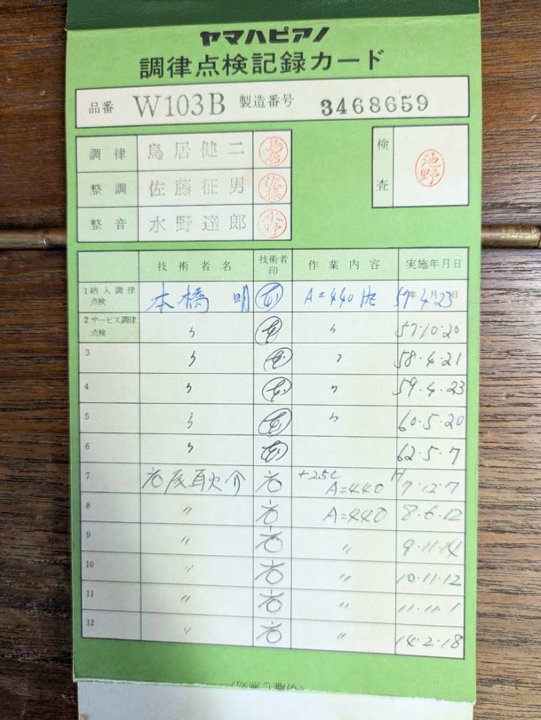 ヤマハピアノ
調律点検記録カード
品番 W103B 製造番号 3468659
調律 鳥居健二 鳥居 検査 池野
整調 佐藤征男 佐藤
整音 水野達郎 水野
技術者名 技術者印 作業内容 実施年月日
1 納入調律点検 本橋 明 A=440Hz 57年4月23日
2 サービス調律点検 〃 〃 57.10.20
3 〃 〃 58.4.21
4 〃 〃 59.4.23
5 〃 〃 60.5.20
6 〃 62.5.7
7 +25c A=440 H7.12.7
8 〃 A=440 8.6.12
9 〃 〃 9.11.14
10 〃 〃 10.11.12
11 〃 〃 11.11.1
12 〃 〃 14.2.18